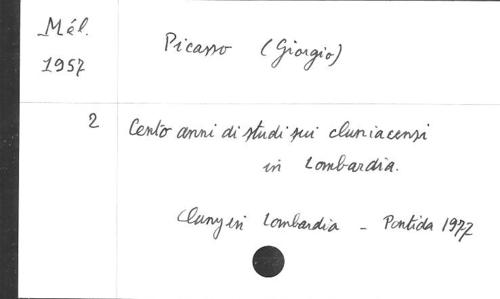 Mél.
1957
Picasso (Giorgio)
2
Cento anni di studi sui cluniacensi
in Lombardia.
Cluny in Lombardia - Pontida 1977